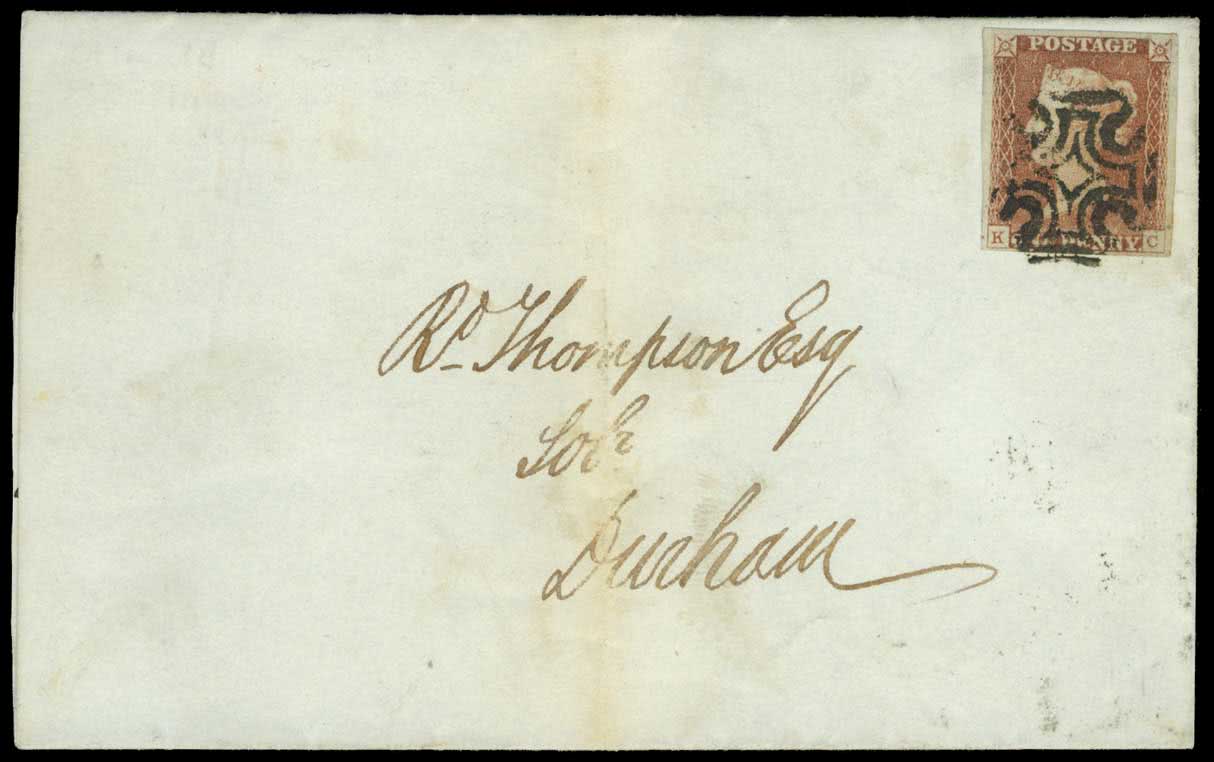 POSTAGE
K PENNY C
Rd Thompson Esq
Solr
Durham